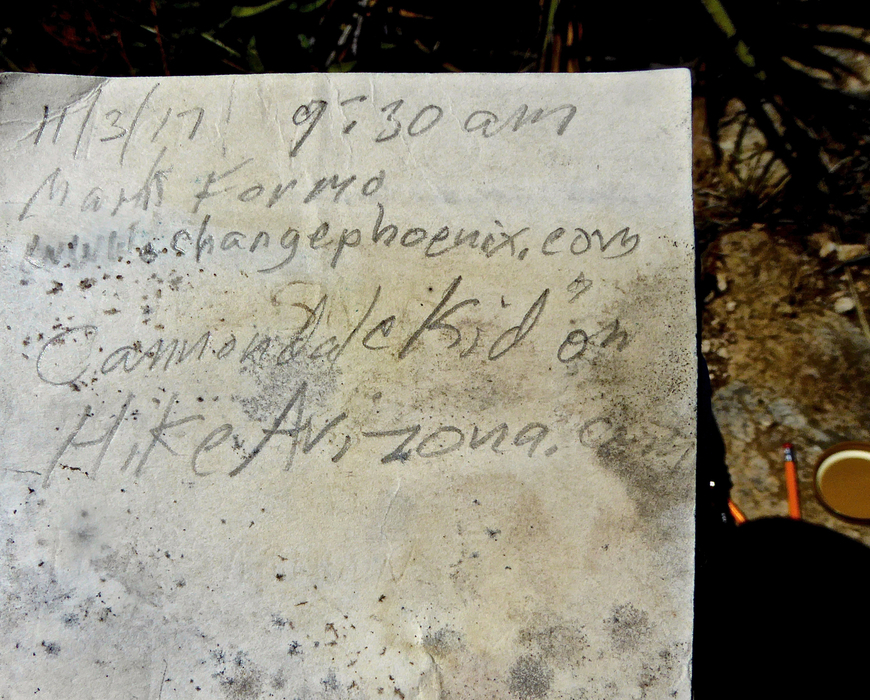 11/3/17 9:30 am
Mark Formo
www.changephoenix.com
Cannondale Kid on
HikeArizona.com